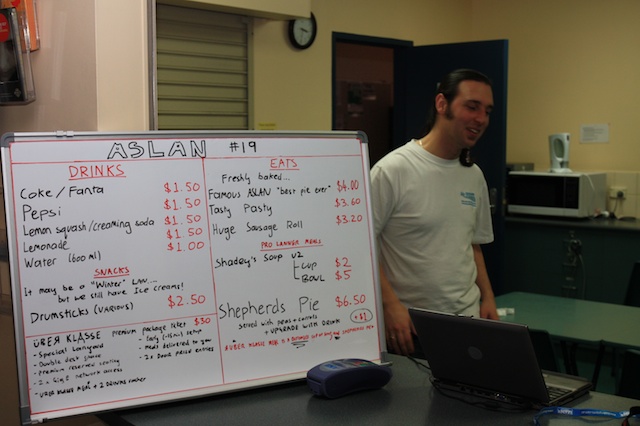 ASLAN #19
DRINKS
Coke / Fanta $1.50
Pepsi $1.50
Lemon squash/creaming soda $1.50
Lemonade $1.50
Water (600ml) $1.00
SNACKS
It may be a "Winter" LAN...
but we still have Ice creams!
Drumsticks (various) $2.50
ÜBER KLASSE premium package $30
- Special
- Double desk space
- premium reserved seating
- network access
- meals delivered to you
- 2x Door prize entries
EATS
Freshly baked...
Famous ASLAN "best pie ever" $4.00
Tasty Pasty $3.60
Huge Sausage Roll $3.20
PRO LANNER MEALS
Shadey's Soup v2
CUP $2
BOWL $5
Shepherds Pie $6.50
served with peas + carrots
+ UPGRADE WITH DRINK +$1